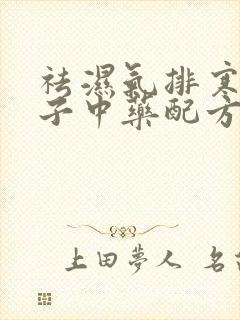 祛濕氣排寒
子中藥配方
上田夢人 名